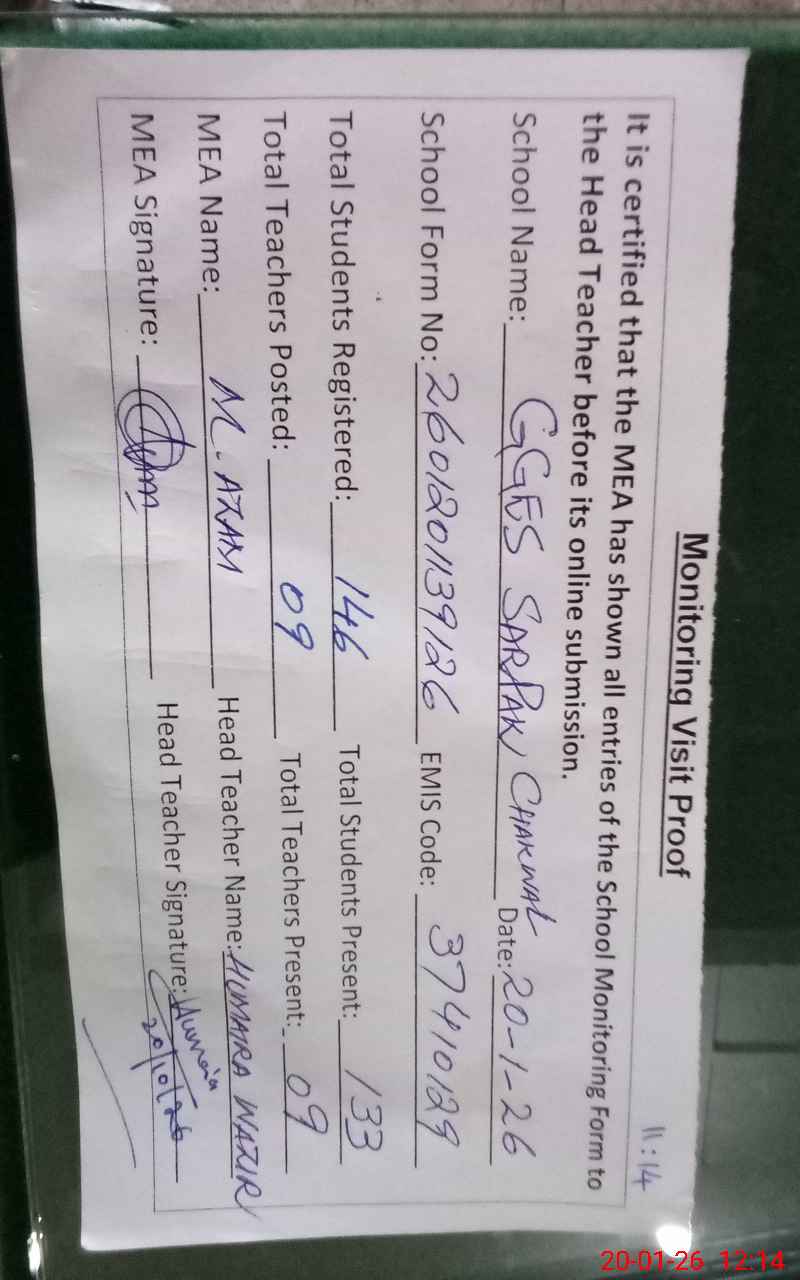 11:14
Monitoring Visit Proof
It is certified that the MEA has shown all entries of the School Monitoring Form to
the Head Teacher before its online submission.
School Name: GGES SARPAK CHAKWAL Date: 20-1-26
School Form No: 2601201139126 EMIS Code: 37410129
Total Students Registered: 146 Total Students Present: 133
Total Teachers Posted: 09 Total Teachers Present: 09
MEA Name: M. AZAM Head Teacher Name: HUMAIRA WAZIR
MEA Signature: Head Teacher Signature: Humaira
20/10/26
20-01-26 12:14